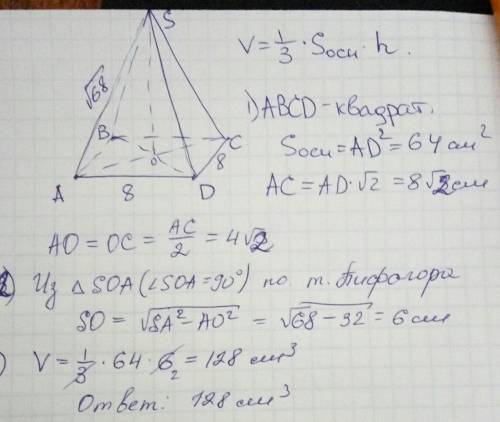 S
√68
B
C
O
8
A
8
D
V = 1/3 · Sосн · h.
1) ABCD – квадрат.
Sосн = AD² = 64 см²
AC = AD · √2 = 8√2 см
AO = OC = AC/2 = 4√2
2) Из △ SOA (∠SOA = 90°) по т. Пифагора
SO = √(SA² – AO²) = √(68 – 32) = 6 см
) V = 1/3 · 64 · 6 2 = 128 см³
Ответ: 128 см³